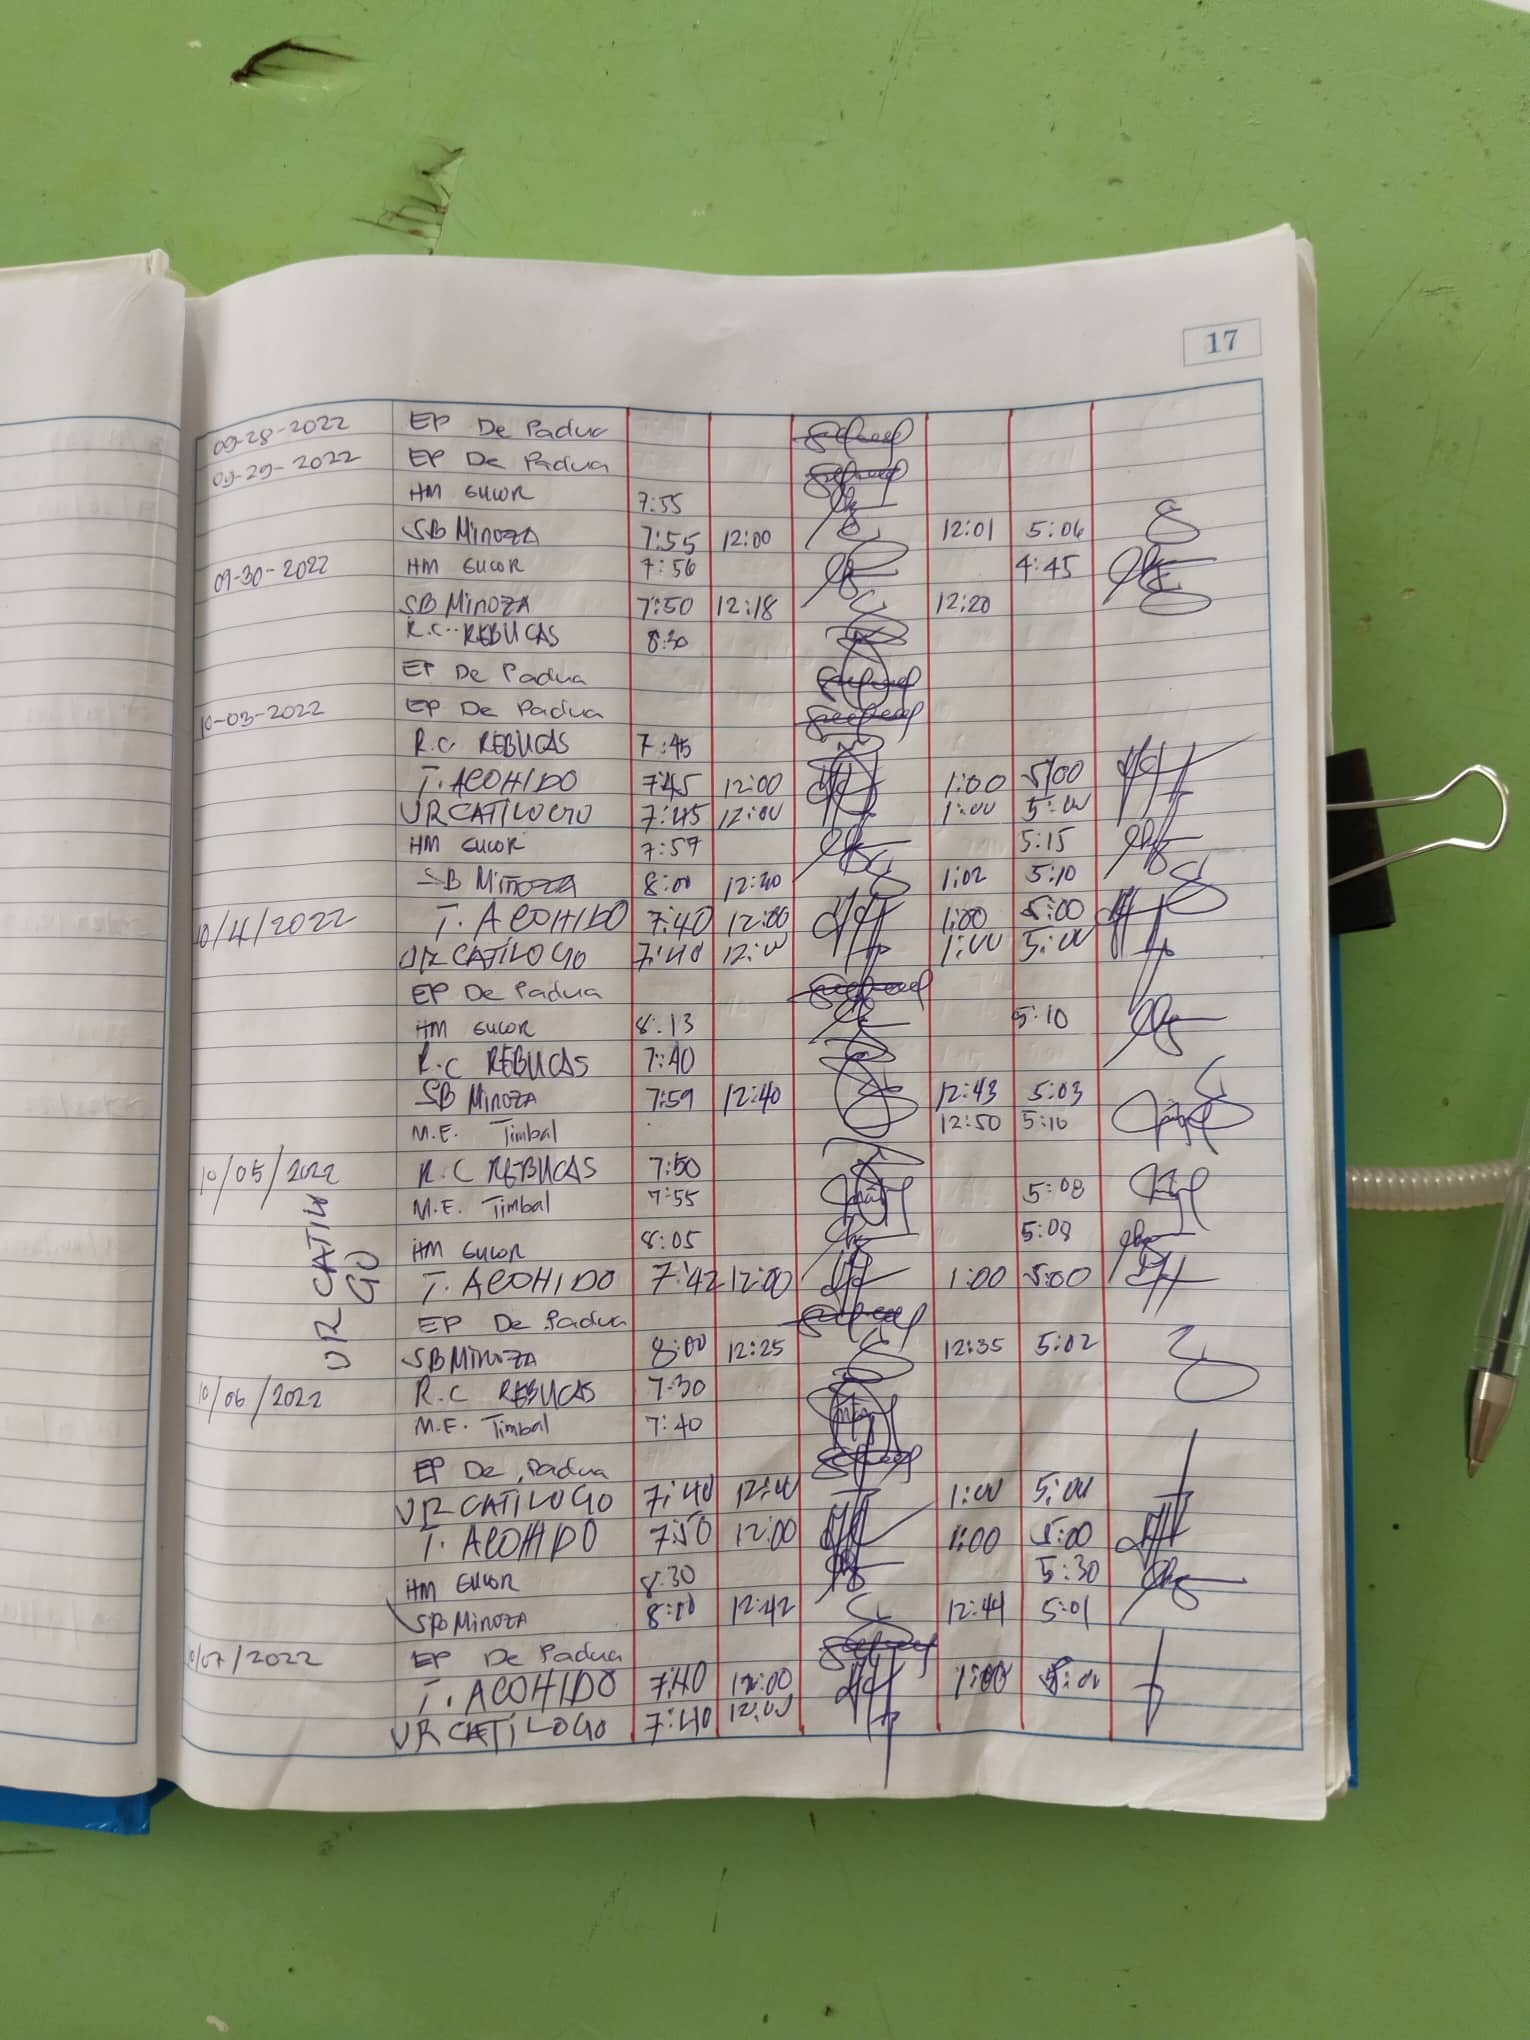 17
09-28-2022 EP De Padua
09-29-2022 EP De Padua
HM Gucor 7:55
SB Minoza 7:55 12:00 12:01 5:06
09-30-2022 HM Gucor 7:56 4:45
SB Minoza 7:50 12:18 12:20
R.C. REBUCAS 8:30
EP De Padua
10-03-2022 EP De Padua
R.C. REBUCAS 7:45
T. ACOHIDO 7:45 12:00 1:00 5:00
UR CATILOGO 7:45 12:00 1:00 5:00
HM Gucor 7:59 5:15
SB Minoza 8:00 12:30 1:02 5:10
10/4/2022 T. ACOHIDO 7:40 12:00 1:00 5:00
UR CATILOGO 7:40 12:00 1:00 5:00
EP De Padua
HM Gucor 8:13 5:10
R.C REBUCAS 7:40
SB Minoza 7:59 12:40 12:43 5:03
M.E. Timbal 12:50 5:10
10/05/2022 R.C REBUCAS 7:50
M.E. Timbal 7:55 5:08
HM Gucor 8:05 5:09
T. ACOHIDO 7:42 12:00 1:00 5:00
EP De Padua
UR CATILO
GO
SB Minoza 8:00 12:25 12:35 5:02
10/06/2022 R.C REBUCAS 7:30
M.E. Timbal 7:40
EP De Padua
UR CATILOGO 7:40 12:00 1:00 5:00
T. ACOHIDO 7:50 12:00 1:00 5:00
HM Gucor 8:30 5:30
SB Minoza 8:00 12:42 12:44 5:01
10/07/2022 EP De Padua
T. ACOHIDO 7:40 12:00 1:00 5:00
UR CATILOGO 7:40 12:00